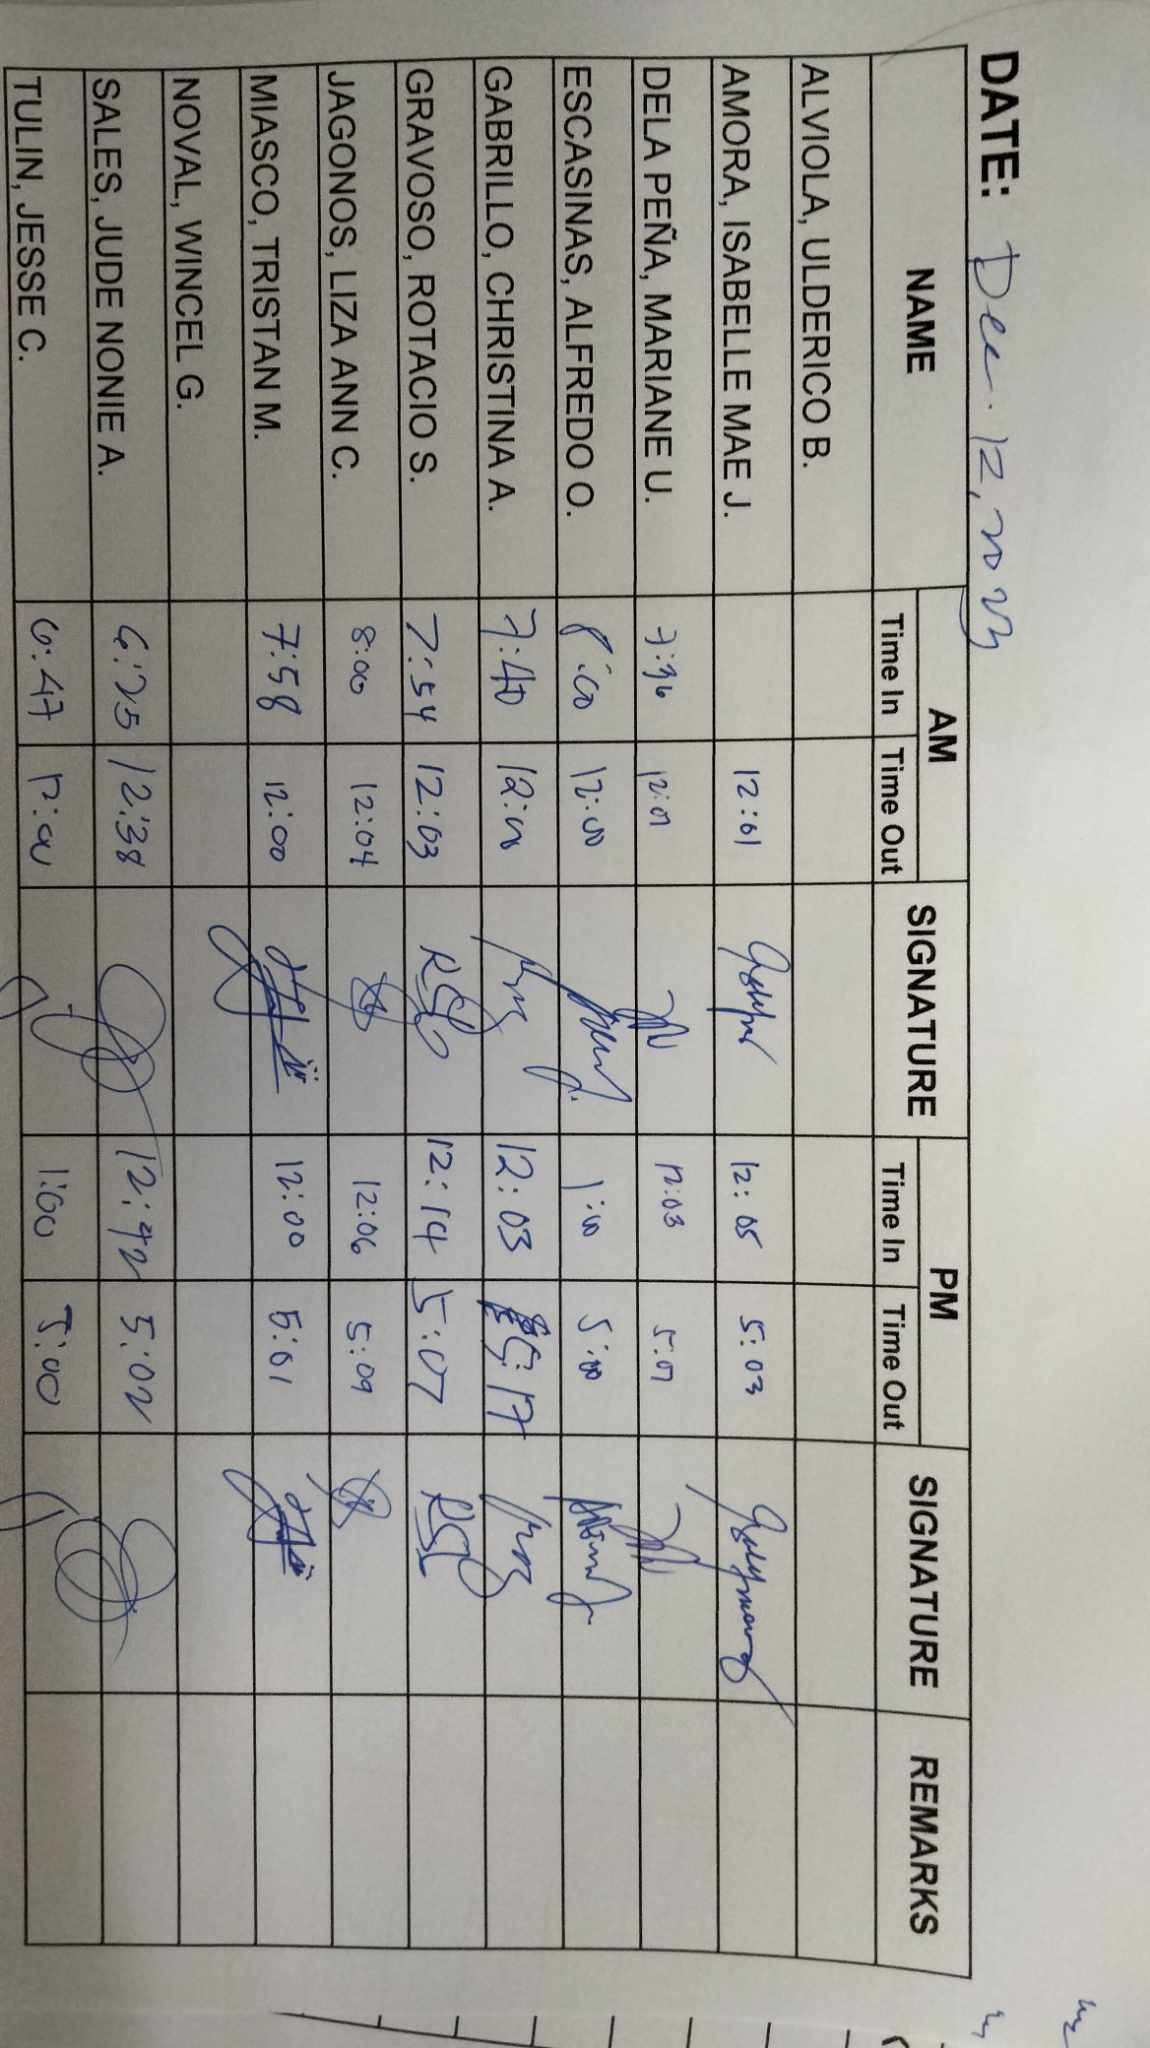 DATE: Dec. 12, 2023
NAME AM SIGNATURE PM SIGNATURE REMARKS
Time In Time Out Time In Time Out
ALVIOLA, ULDERICO B.
AMORA, ISABELLE MAE J. 12:01 12:05 5:03
DELA PEÑA, MARIANE U. 7:36 12:01 12:03 5:07
ESCASINAS, ALFREDO O. 8:00 12:00 1:00 5:00
GABRILLO, CHRISTINA A. 7:40 12:00 12:03 5:17
GRAVOSO, ROTACIO S. 7:54 12:03 12:14 5:07
JAGONOS, LIZA ANN C. 8:00 12:04 12:06 5:09
MIASCO, TRISTAN M. 7:58 12:00 12:00 5:01
NOVAL, WINCEL G.
SALES, JUDE NONIE A. 6:25 12:38 12:42 5:02
TULIN, JESSE C. 6:47 12:00 1:00 5:00